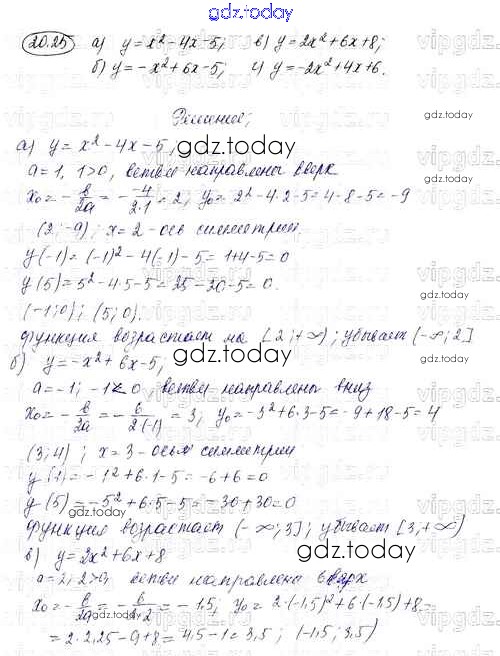 gdz.today
20.25 а) y=x²-4x-5; в) y=2x²+6x+8;
б) y=-x²+6x-5; г) y=-2x²+4x+6.
Решение;
а) y=x²-4x-5,
a=1, 1>0, ветви направлены вверх
x₀=-b/2a=--4/2·1=2; y₀=2²-4·2-5=4-8-5=-9
(2;-9); x=2-ось симметрии.
y(-1)=(-1)²-4(-1)-5=1+4-5=0
y(5)=5²-4·5-5=25-20-5=0.
(-1;0); (5;0).
функция возрастает на [2;+∞); убывает (-∞;2]
б) y=-x²+6x-5;
a=-1; -1<0 ветви направлены вниз
x₀=-b/2a=-6/2(-1)=3; y₀=-3²+6·3-5=-9+18-5=4
(3;4); x=3-ось симметрии
y(1)=-1²+6·1-5=-6+6=0
y(5)=-5²+6·5-5=-30+30=0
функция возрастает (-∞;3]; убывает [3;+∞)
в) y=2x²+6x+8
a=2; 2>0, ветви направлена вверх
x₀=-b/2a=-6/2·2=-1,5; y₀=2·(-1,5)²+6·(-1,5)+8=
=2·2,25-9+8=4,5-1=3,5; (-1,5; 3,5)